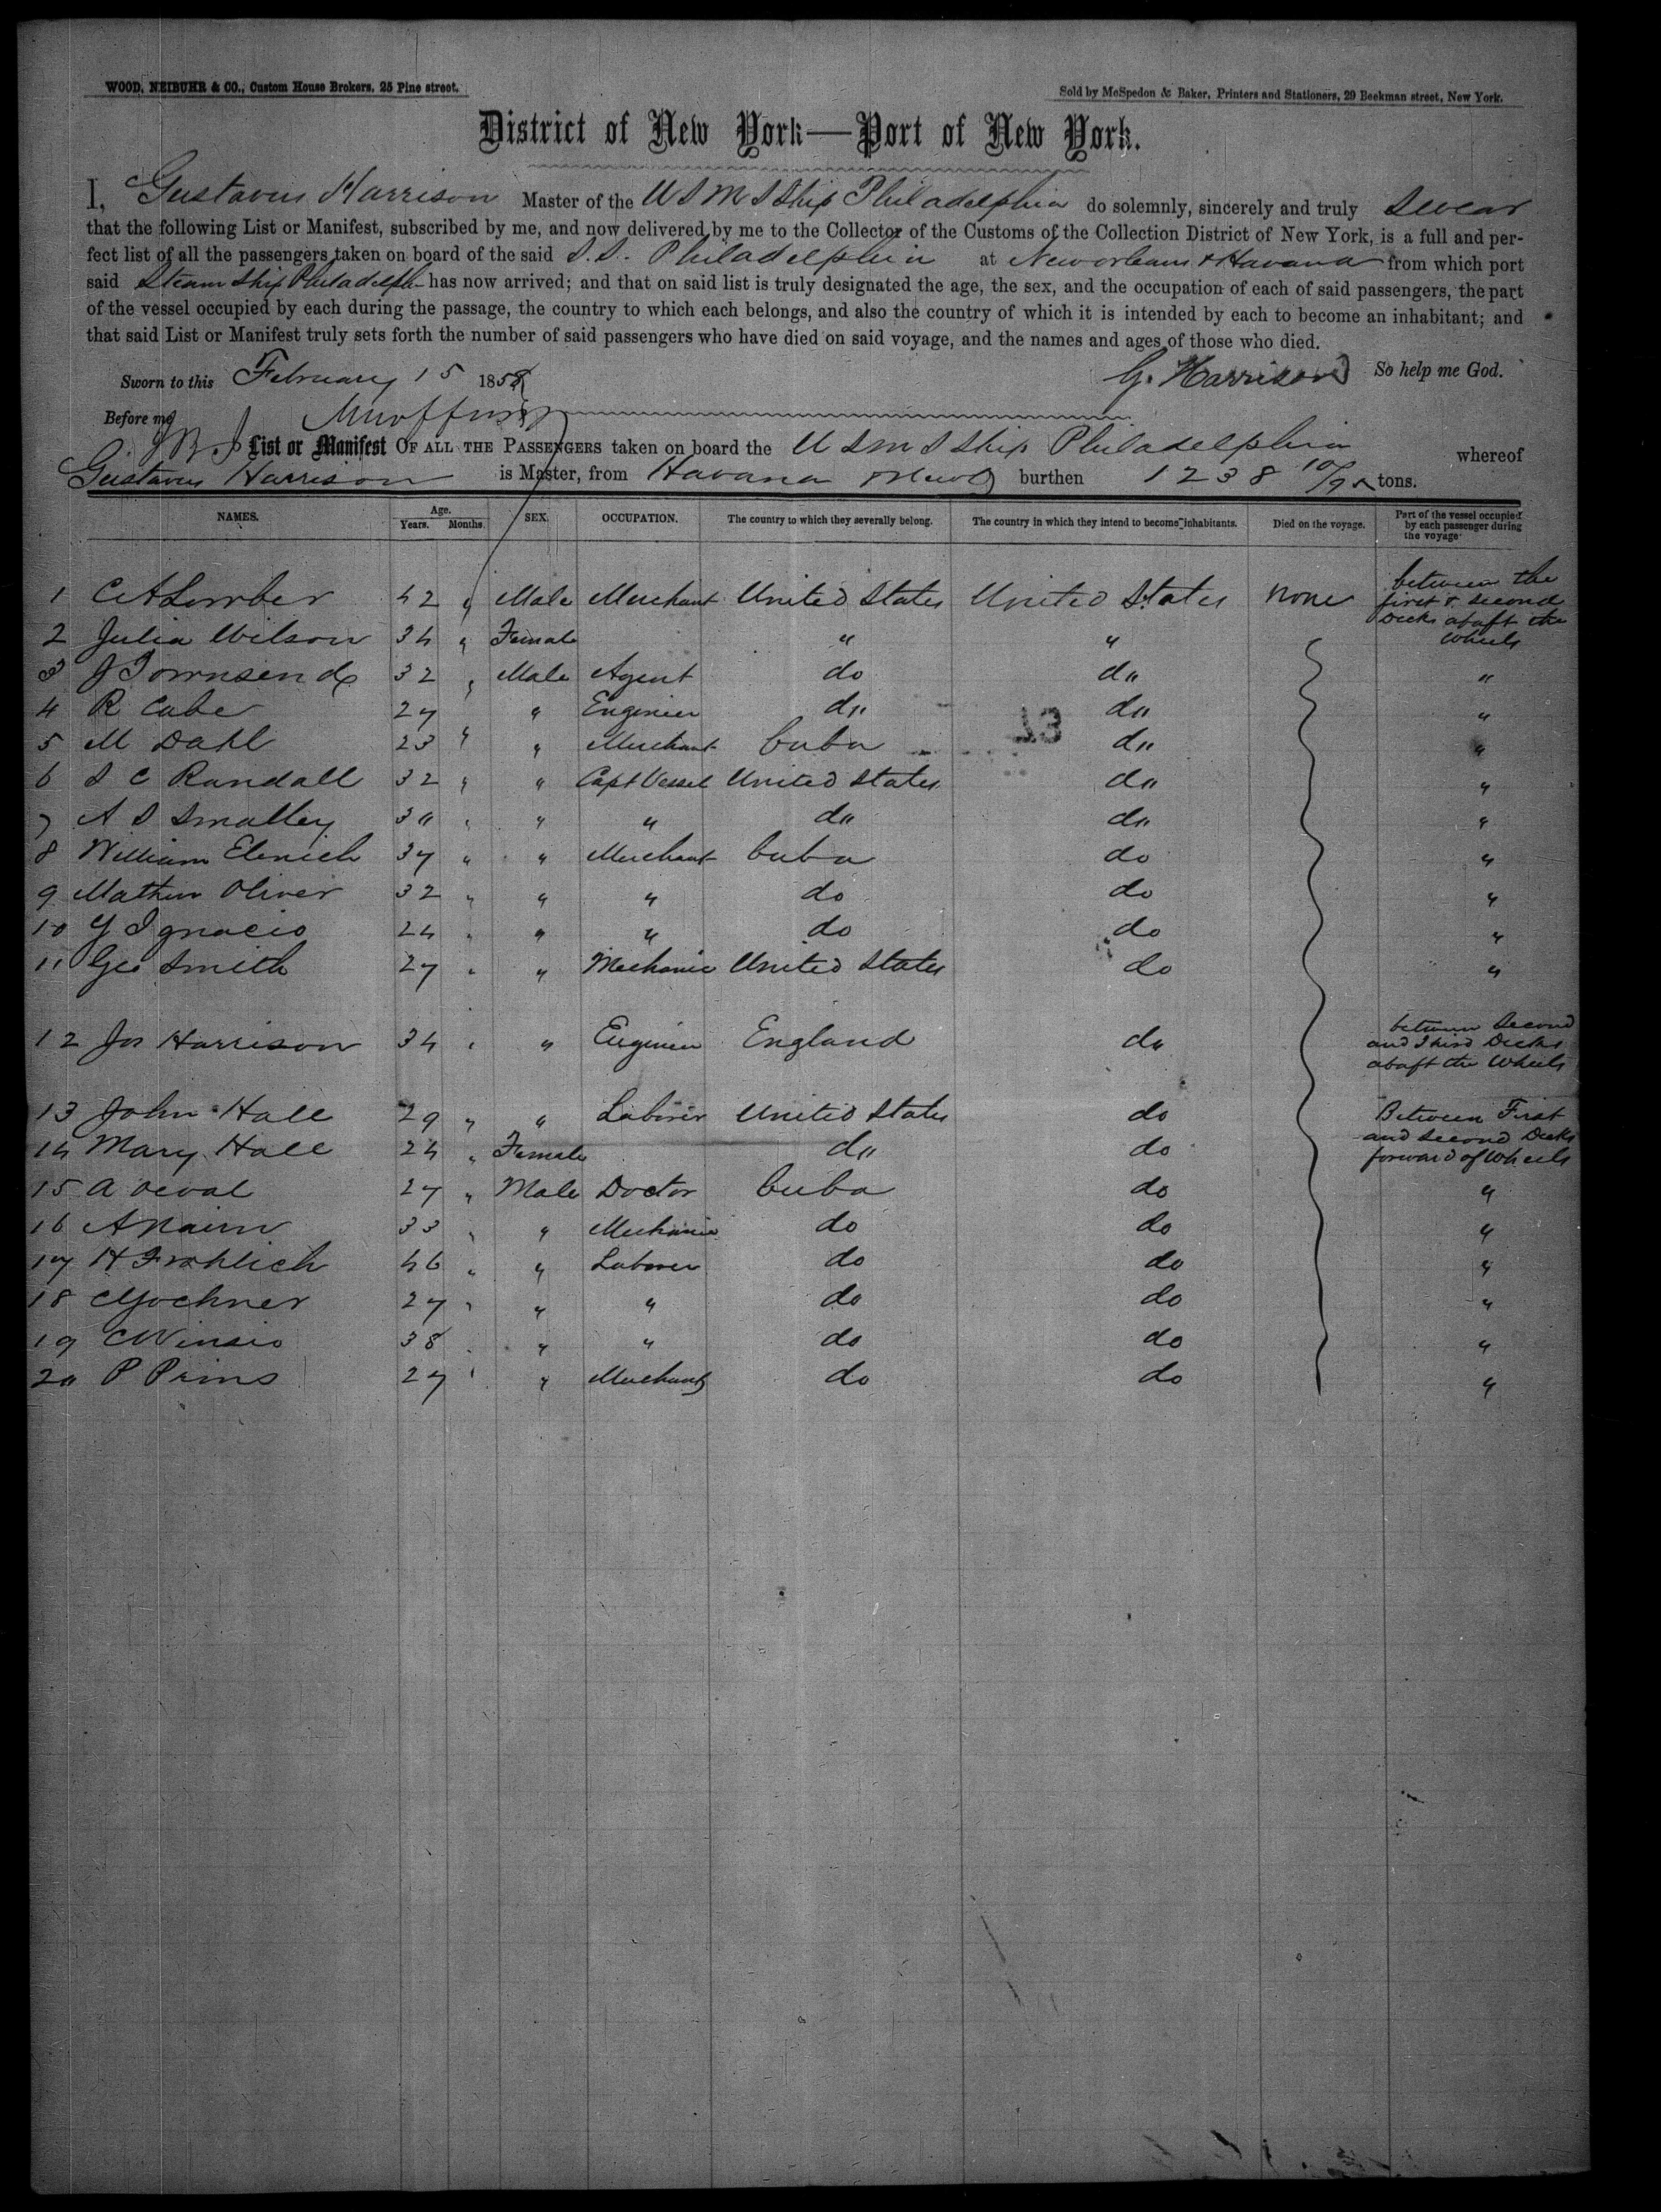 WOOD, NEIBUHR & CO., Custom House Brokers, 25 Pine street.
Sold by McSpedon & Baker, Printers and Stationers, 29 Beekman street, New York.
District of New York—Port of New York.
I, Gustavus Harrison Master of the U S M S Ship Philadelphia do solemnly, sincerely and truly swear
that the following List or Manifest, subscribed by me, and now delivered by me to the Collector of the Customs of the Collection District of New York, is a full and per-
fect list of all the passengers taken on board of the said S.S. Philadelphia at New orleans & Havana from which port
said Steam Ship Philadelph has now arrived; and that on said list is truly designated the age, the sex, and the occupation of each of said passengers, the part
of the vessel occupied by each during the passage, the country to which each belongs, and also the country of which it is intended by each to become an inhabitant; and
that said List or Manifest truly sets forth the number of said passengers who have died on said voyage, and the names and ages of those who died.
Sworn to this February 15 1858 G. Harrison So help me God.
Before me
List or Manifest OF ALL THE PASSENGERS taken on board the U S M S Ship Philadelphia whereof
Gustavus Harrison is Master, from Havana burthen 1238 10/95 tons.
NAMES. Age. Years. Months. SEX. OCCUPATION. The country to which they severally belong. The country in which they intend to become inhabitants. Died on the voyage. Part of the vessel occupied by each passenger during the voyage
1 C A Lomber 42 " Male Merchant United States United States None between the first & second Decks abaft the Wheels
2 Julia Wilson 34 " Female " "
3 J Townsend 32 " Male Agent do do "
4 R Cabe 27 " Engineer do do "
5 M Dahl 23 " " Merchant Cuba do "
6 S C Randall 32 " " Capt Vessel United States do "
7 A S Smalley 30 " " " do do "
8 William Elenich 37 " " Merchant Cuba do "
9 Mathew Oliver 32 " " " do do "
10 Y Ignacio 24 " " " do do "
11 Geo Smith 27 " " Mechanic United States do "
12 Jos Harrison 34 " " Engineer England do between Second and Third Decks abaft the Wheels
13 John Hall 29 " " Laborer United States do Between First and Second Decks forward of Wheels
14 Mary Hall 24 " Female do do
15 A Deval 27 " Male Doctor Cuba do "
16 A Nairn 33 " " Mechanic do do "
17 H Frohlich 46 " " Laborer do do "
18 C Yochner 27 " " " do do "
19 C Winsio 38 " " " do do "
20 P Prins 27 " " Merchant do do "